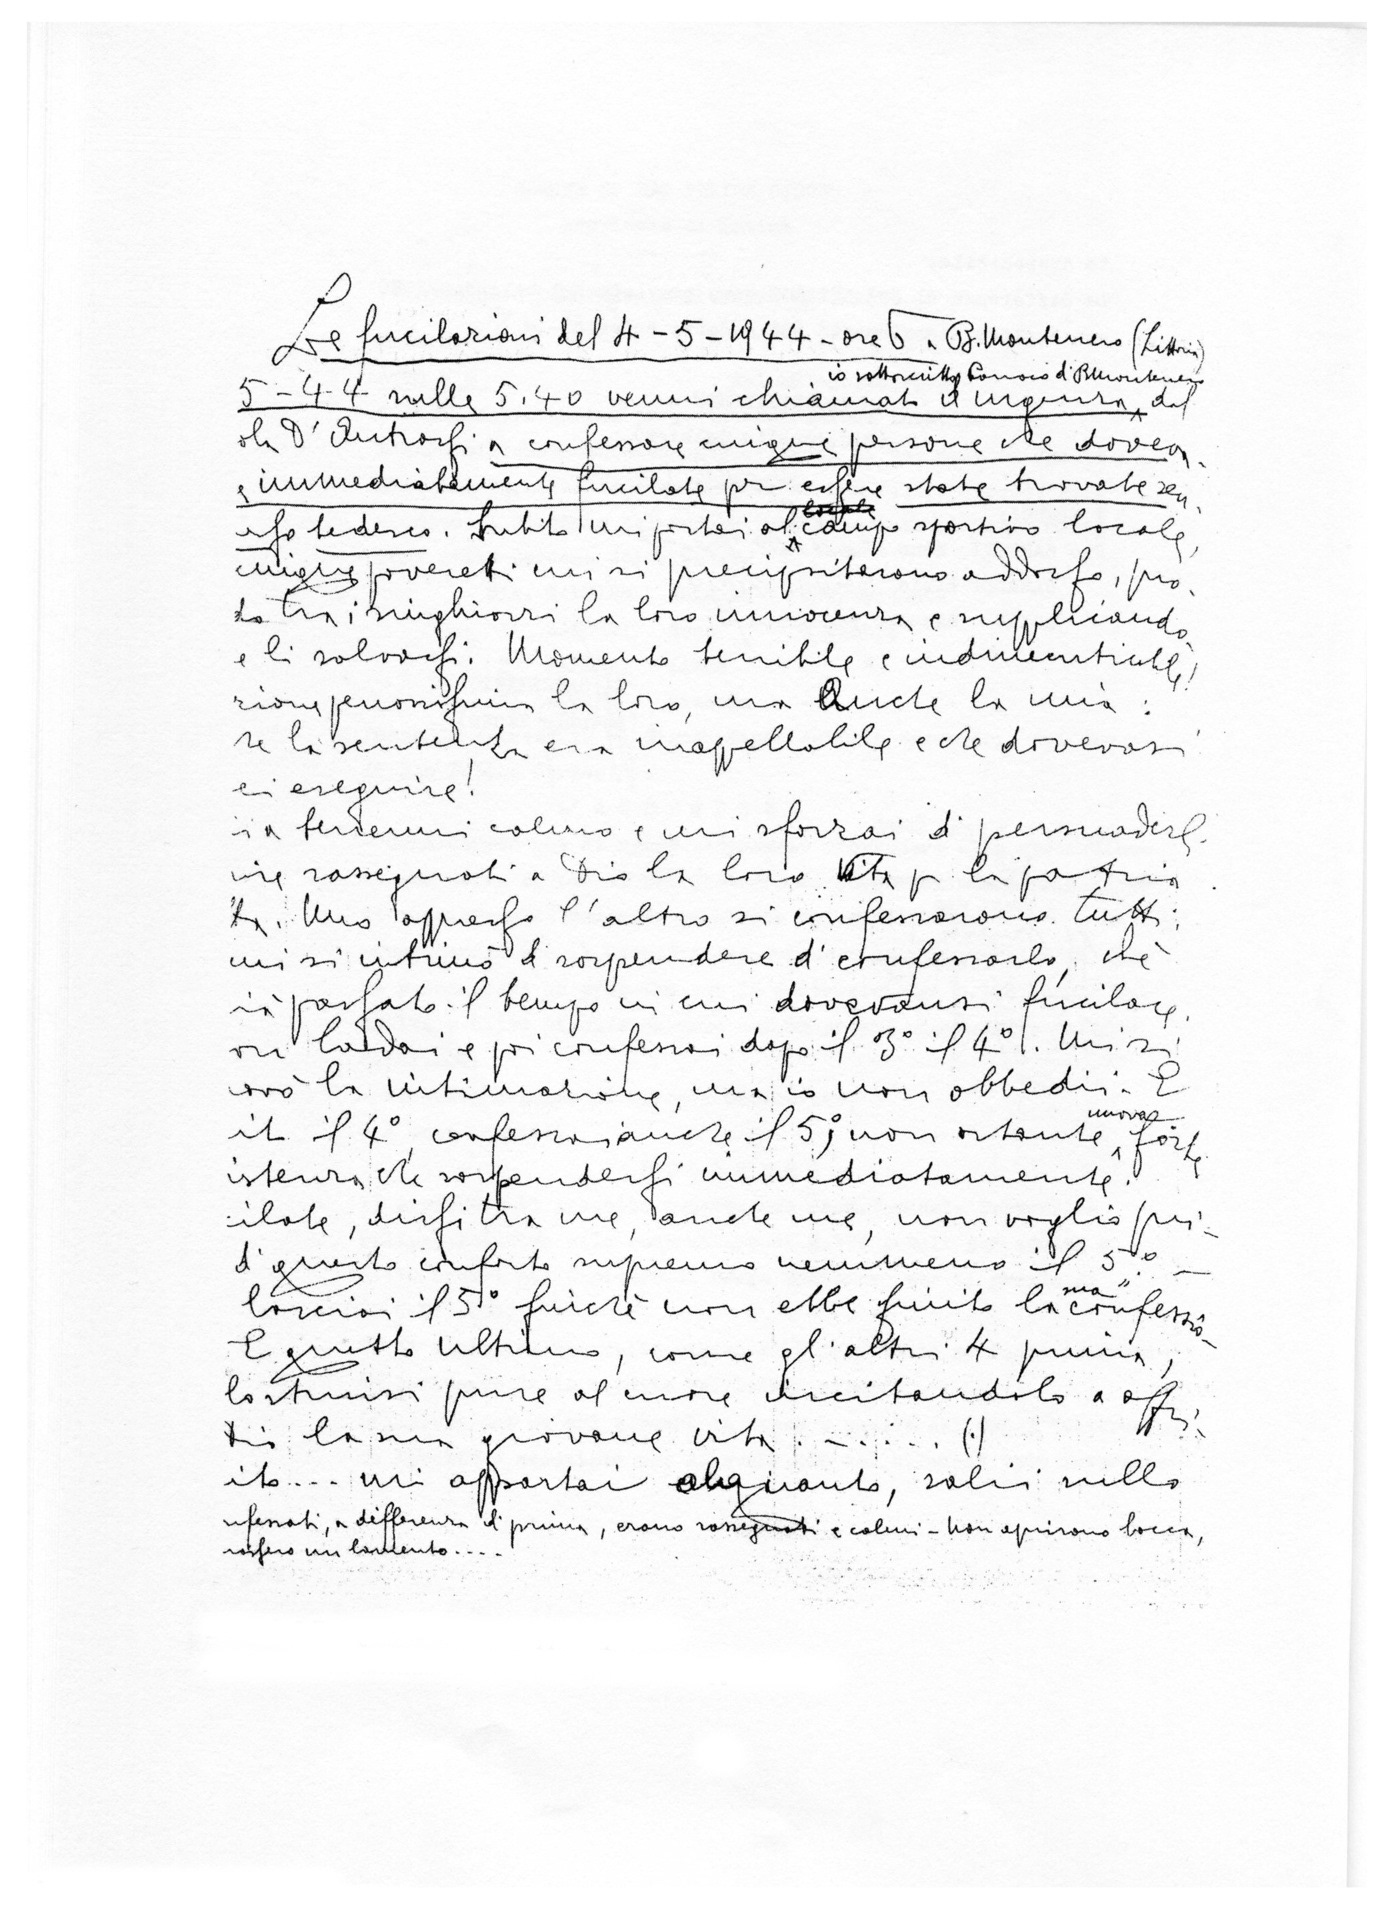 Le fucilazioni del 4-5-1944 - ore 6 a B. Montenero (Littoria)
io sottoscritto Parroco di B Montenero
5-44 sulle 5.40 venni chiamato d'urgenza dal
ola D'Antrassi a confessare cinque persone che dovea
e immediatamente fucilate per essere state trovate sen
esso tedesco. Subito mi portai al campo sportivo locale,
cinque poveretti mi si precipitarono addosso, pro
do tra i singhiozzi la loro innocenza e supplicando
e li salvassi. Momento terribile e indimenticabile!
zione penosissima la loro, ma anche la mia:
re la sentenza era inappellabile e che dovevasi
ei eseguire!
ia tenermi calmo e mi sforzai di persuaderl
ire rassegnati a Dio la loro vita p la patria
ta. Uno appresso l'altro si confessarono tutti;
mi si intimò di sospendere di confessarlo, chè
ià passato il tempo in cui dovevansi fucilare.
on badai e poi confessai dopo il 3° il 4°. Mi si
ovò la intimazione, ma io non obbedii. E
ito il 4°, confessai anche il 5°, non ostante nuova forte
istenza che sospendessi immediatamente.
cilate, dissi tra me, anche me, non voglio pri-
di questo conforto supremo nemmeno il 5° -
lasciai il 5° finchè non ebbe finito la sua confessio-
E questo ultimo, come gl'altri 4 prima,
lo strinsi pure al cuore incitandolo a offri
Dio la sua giovane vita . - . . . . (.)
ito... mi appartai alquanto, salii sullo
nfessati, a differenza di prima, erano rassegnati e calmi - Non aprirono bocca,
issero un lamento....